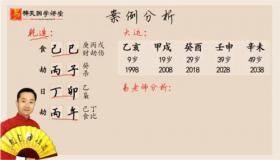 案例分析
乾造：
大运：
食 己巳 庚丙戊 财劫伤
劫 丙子 癸 杀
日 丁卯 乙 枭
劫 丙午 己丁 食比
乙亥 甲戌 癸酉 壬申 辛未
9岁 19岁 29岁 39岁 49岁
1998 2008 2018 2028 2038
易老师分析：